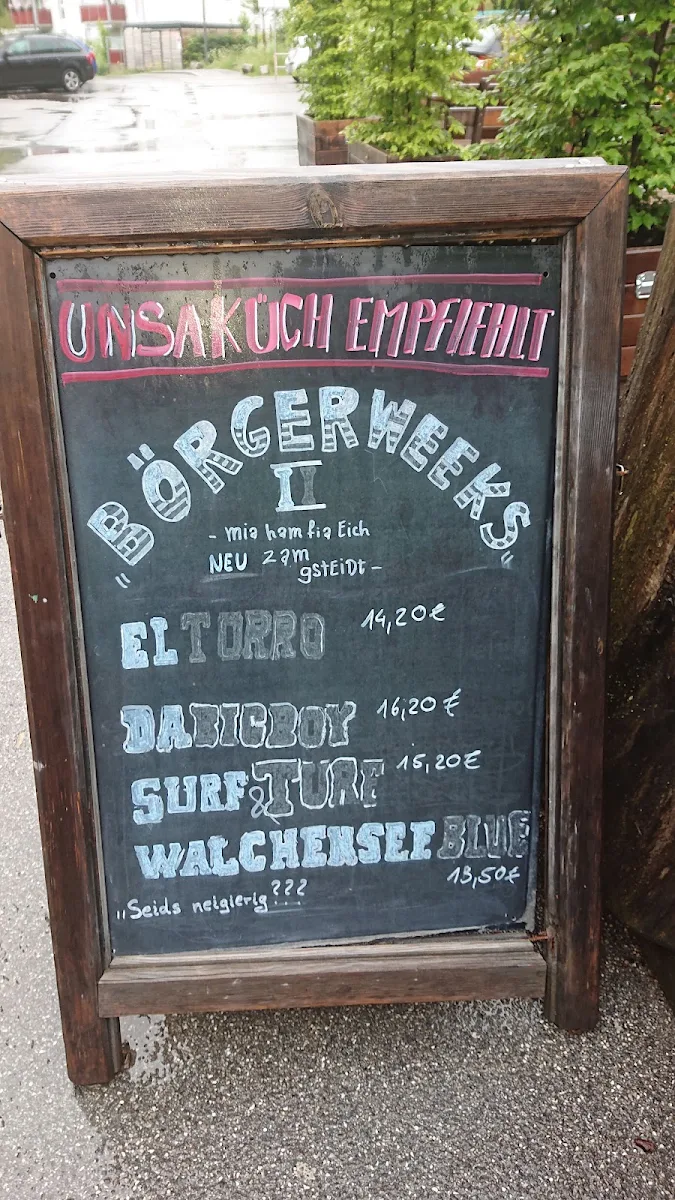 UNSA KÜCH EMPFIEHLT
"BÖRGER WEEKS"
II
- mia ham fia Eich
NEU zam
gstEiDt -
EL TORRO 14,20€
DA BIG BOY 16,20 €
SURF & TURF 15,20€
WALCHENSEE BLUE
13,50€
"Seids neigierig ???